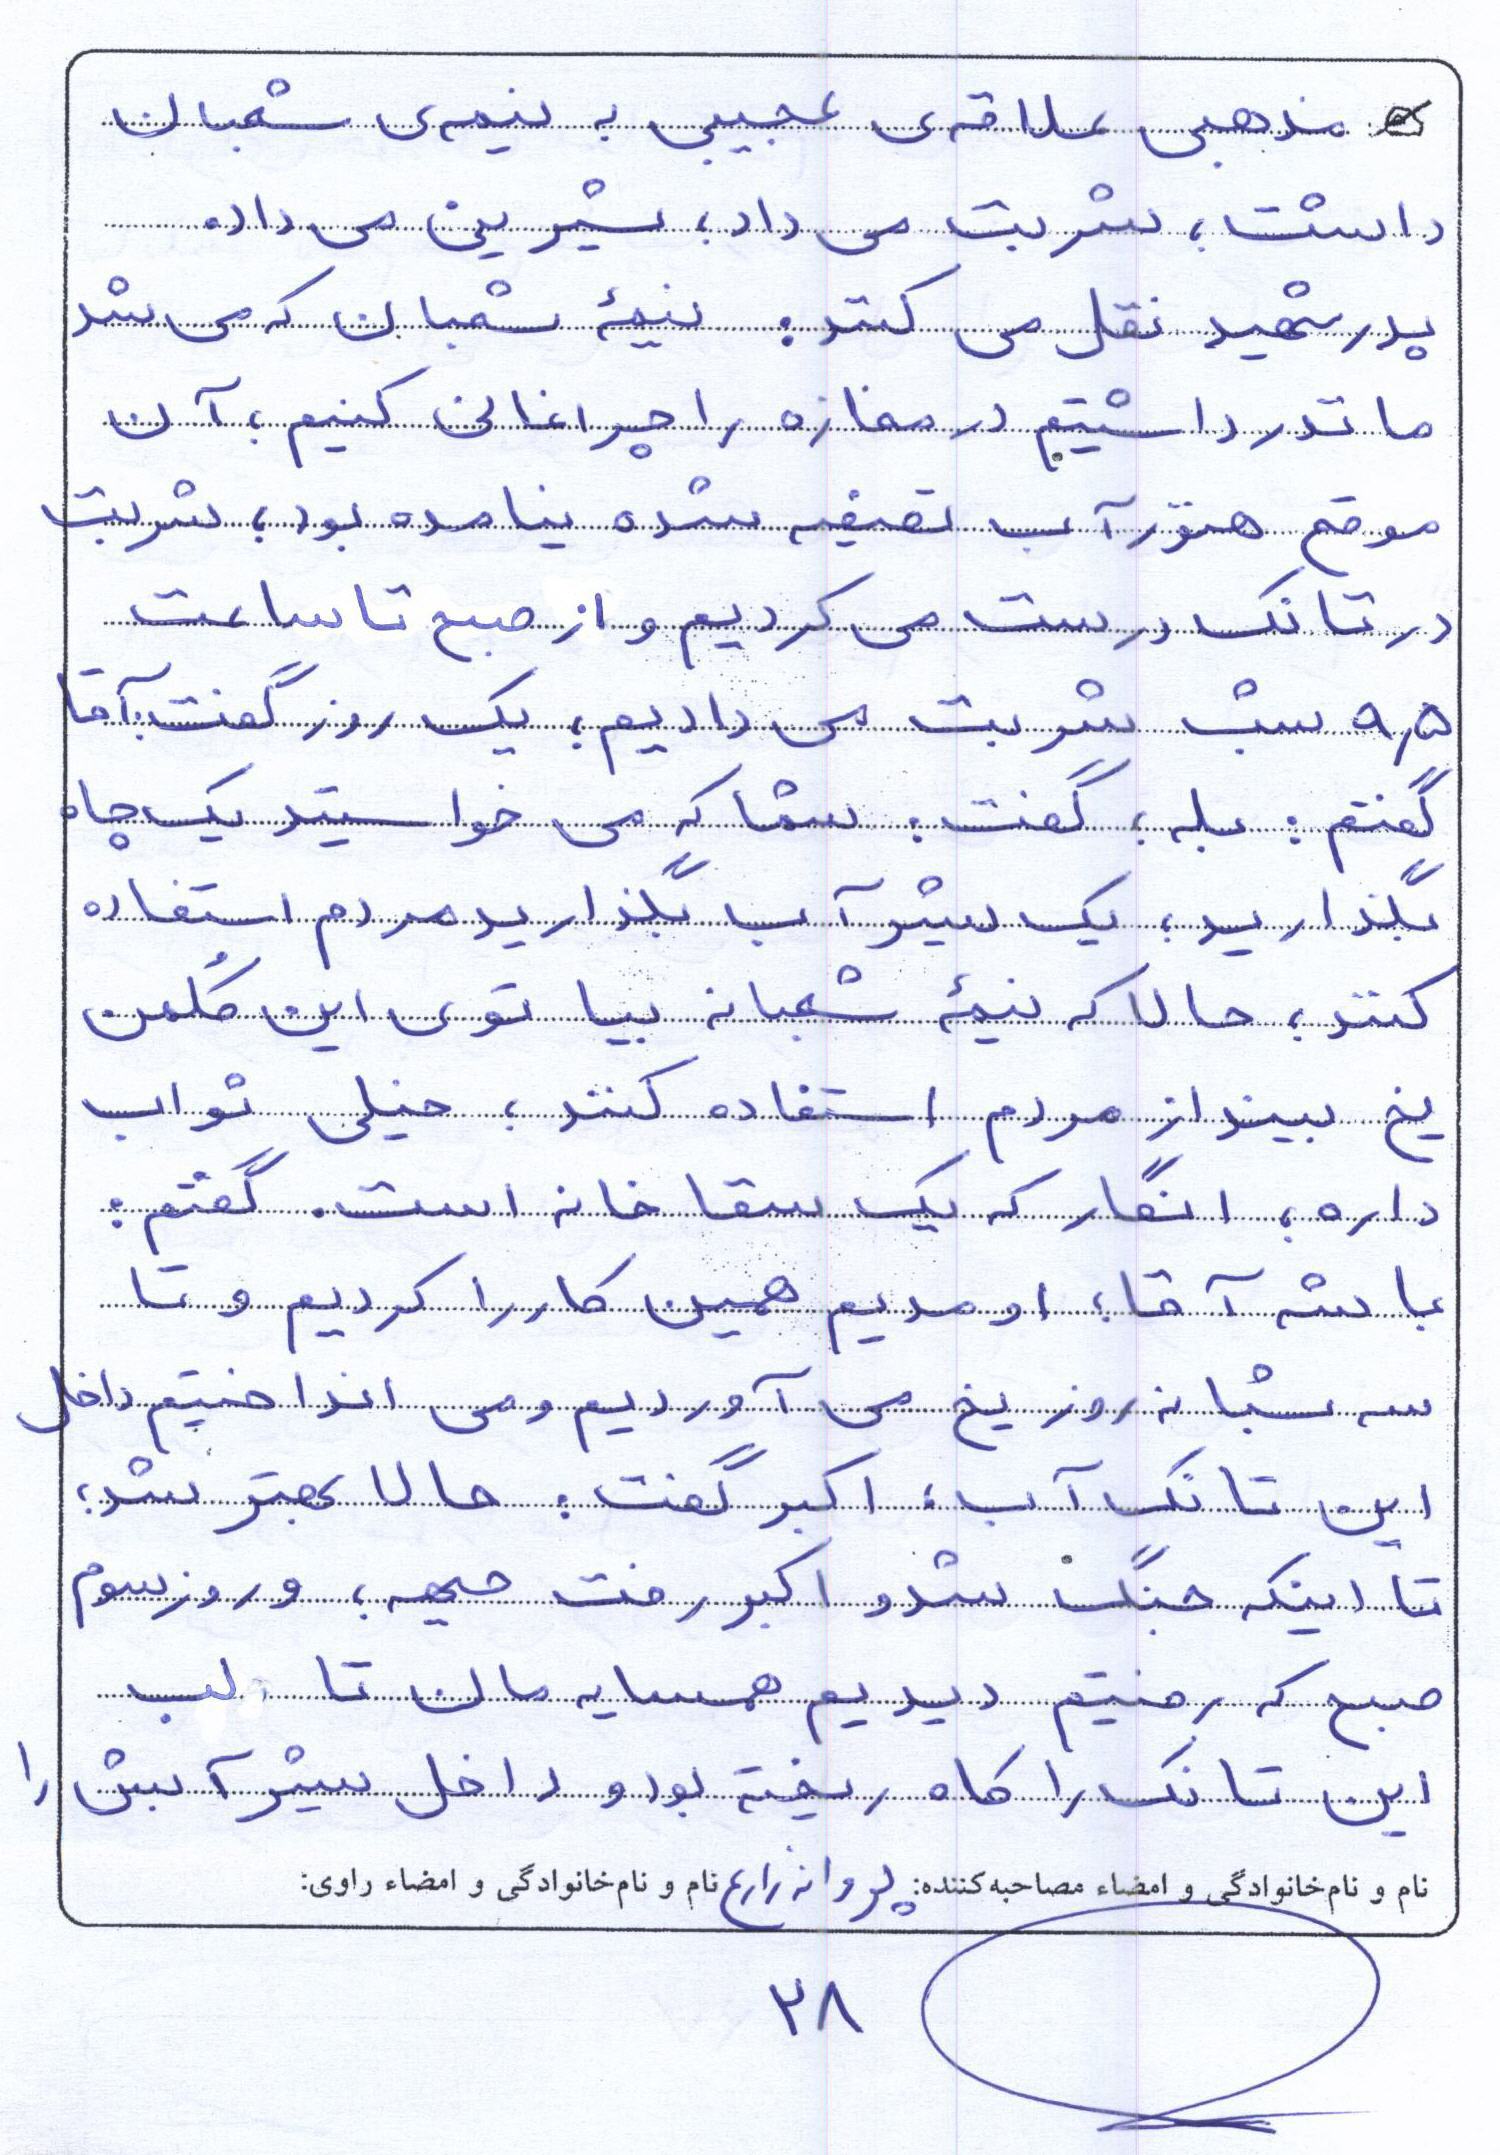 مذهبی علاقه‌ی عجیبی به نیمه‌ی شعبان
داشت، شربت می داد، شیرینی می داد.
پدر شهید نقل می کند: نیمهٔ شعبان که می شد
ما نذر داشتیم در مغازه را چراغانی کنیم، آن
موقع هنوز آب تصفیه شده نیامده بود، شربت
در تانک درست می کردیم و از صبح تا ساعت
۹٫۵ شب شربت می دادیم، یک روز گفت: آقا
گفتم: بله، گفت: شما که می خواستید یک چاه
بگذارید، یک شیر آب بگذارید مردم استفاده
کنند، حالا که نیمهٔ شعبانه بیا توی این کُلمن
یخ بینداز مردم استفاده کنند، خیلی ثواب
داره، انگار که یک سقا خانه است. گفتم:
باشه آقا، اومدیم همین کار را کردیم و تا
سه شبانه روز یخ می آوردیم و می انداختیم داخل
این تانک آب، اکبر گفت: حالا بهتر شد،
تا اینکه جنگ شد و اکبر رفت جبهه، و روز سوم
صبح که رفتیم دیدیم همسایه مان تا لب
این تانک را کاه ریخته بود و داخل شیر آبش را
نام و نام‌خانوادگی و امضاء مصاحبه‌کننده: پروانه زارع نام و نام‌خانوادگی و امضاء راوی:
۲۸